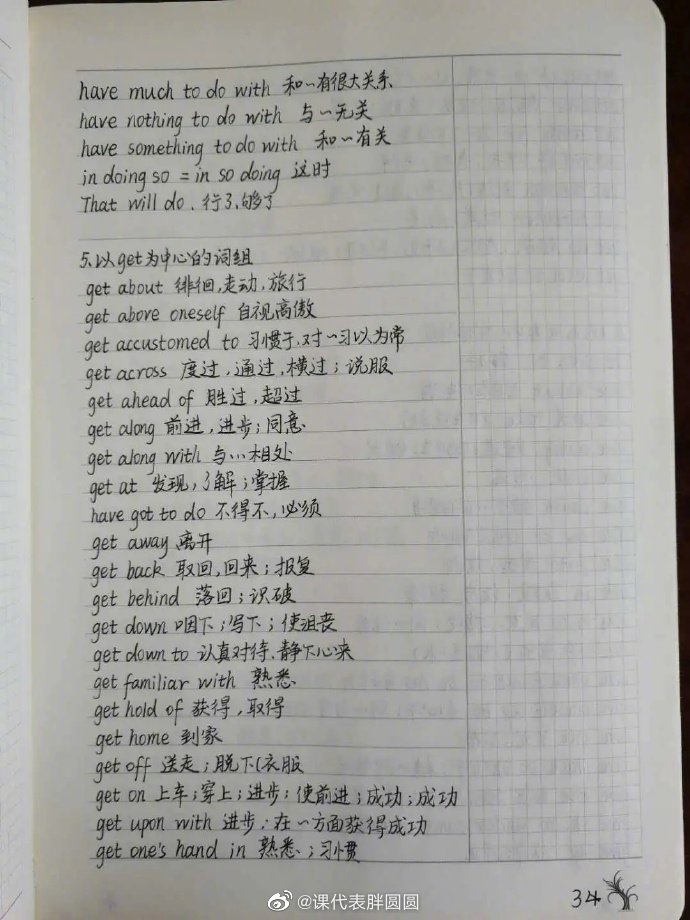 have much to do with 和~有很大关系
have nothing to do with 与~无关
have something to do with 和~有关
in doing so = in so doing 这时
That will do. 行了,够了
5.以get为中心的词组
get about 徘徊,走动,旅行
get above oneself 自视高傲
get accustomed to 习惯于,对~习以为常
get across 度过,通过,横过;说服
get ahead of 胜过,超过
get along 前进,进步;同意
get along with 与...相处
get at 发现,了解;掌握
have got to do 不得不,必须
get away 离开
get back 取回,回来;报复
get behind 落回;识破
get down 咽下;写下;使沮丧
get down to 认真对待,静下心来
get familiar with 熟悉
get hold of 获得,取得
get home 到家
get off 送走;脱下(衣服
get on 上车;穿上;进步;使前进;成功;成功
get upon with 进步.在~方面获得成功
get one's hand in 熟悉;习惯
34
@课代表胖圆圆